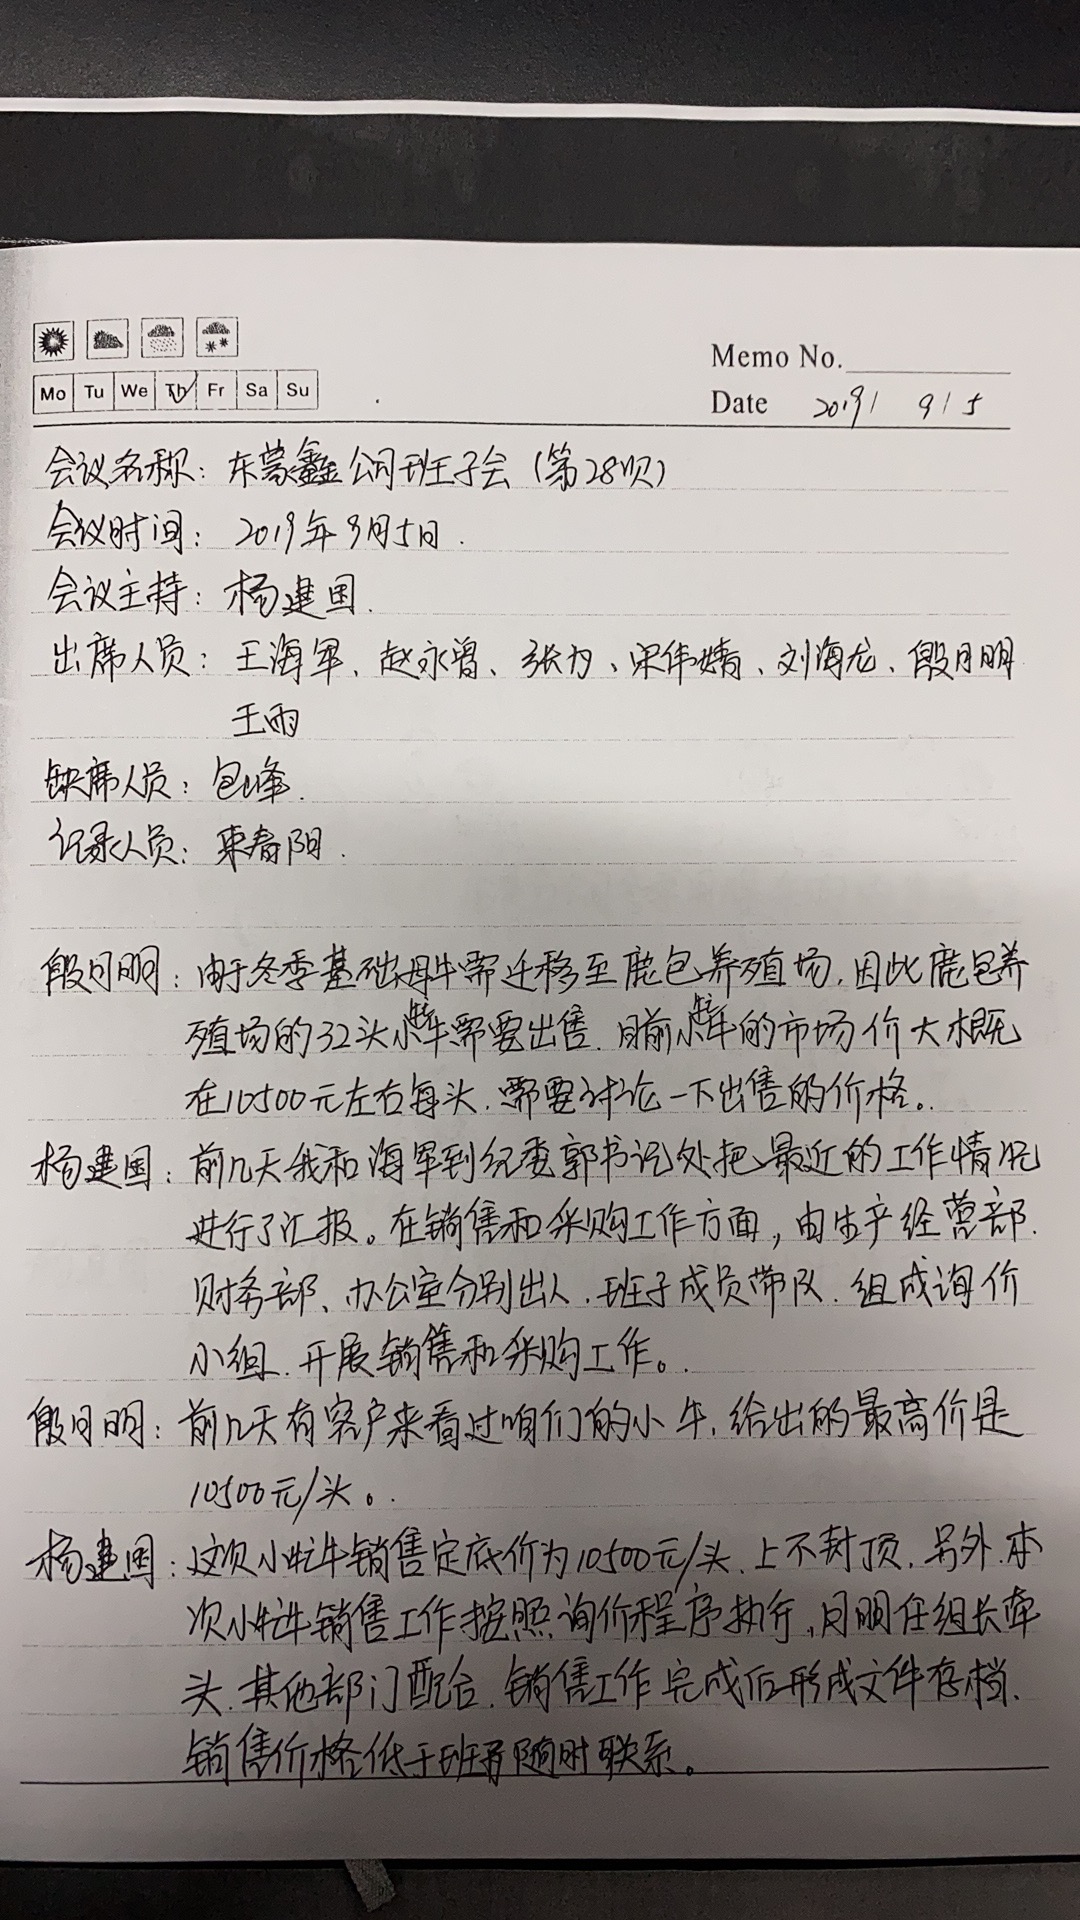 Memo No.
Mo Tu We Th Fr Sa Su
Date 2019 / 9 / 5
会议名称：东蒙鑫公司班子会（第28次）
会议时间：2019年9月5日.
会议主持：杨建国.
出席人员：王海军、赵永曾、张力、宋伟婧、刘海龙、殷月明
王雨
缺席人员：包峰.
记录人员：来春阳.
殷月明：由于冬季基础母牛需迁移至鹿包养殖场，因此鹿包养
殖场的32头小牤牛需要出售，目前小牤牛的市场价大概
在10500元左右每头，需要讨论一下出售的价格。
杨建国：前几天我和海军到纪委郭书记处把最近的工作情况
进行了汇报。在销售和采购工作方面，由生产经营部、
财务部、办公室分别出人，班子成员带队，组成询价
小组，开展销售和采购工作。
殷月明：前几天有客户来看过咱们的小牛，给出的最高价是
10500元/头。
杨建国：这次小牤牛销售定底价为10500元/头，上不封顶，另外，本
次小牤牛销售工作按照询价程序执行，月明任组长牵
头，其他部门配合，销售工作完成后形成文件存档，
销售价格低于班子随时联系。